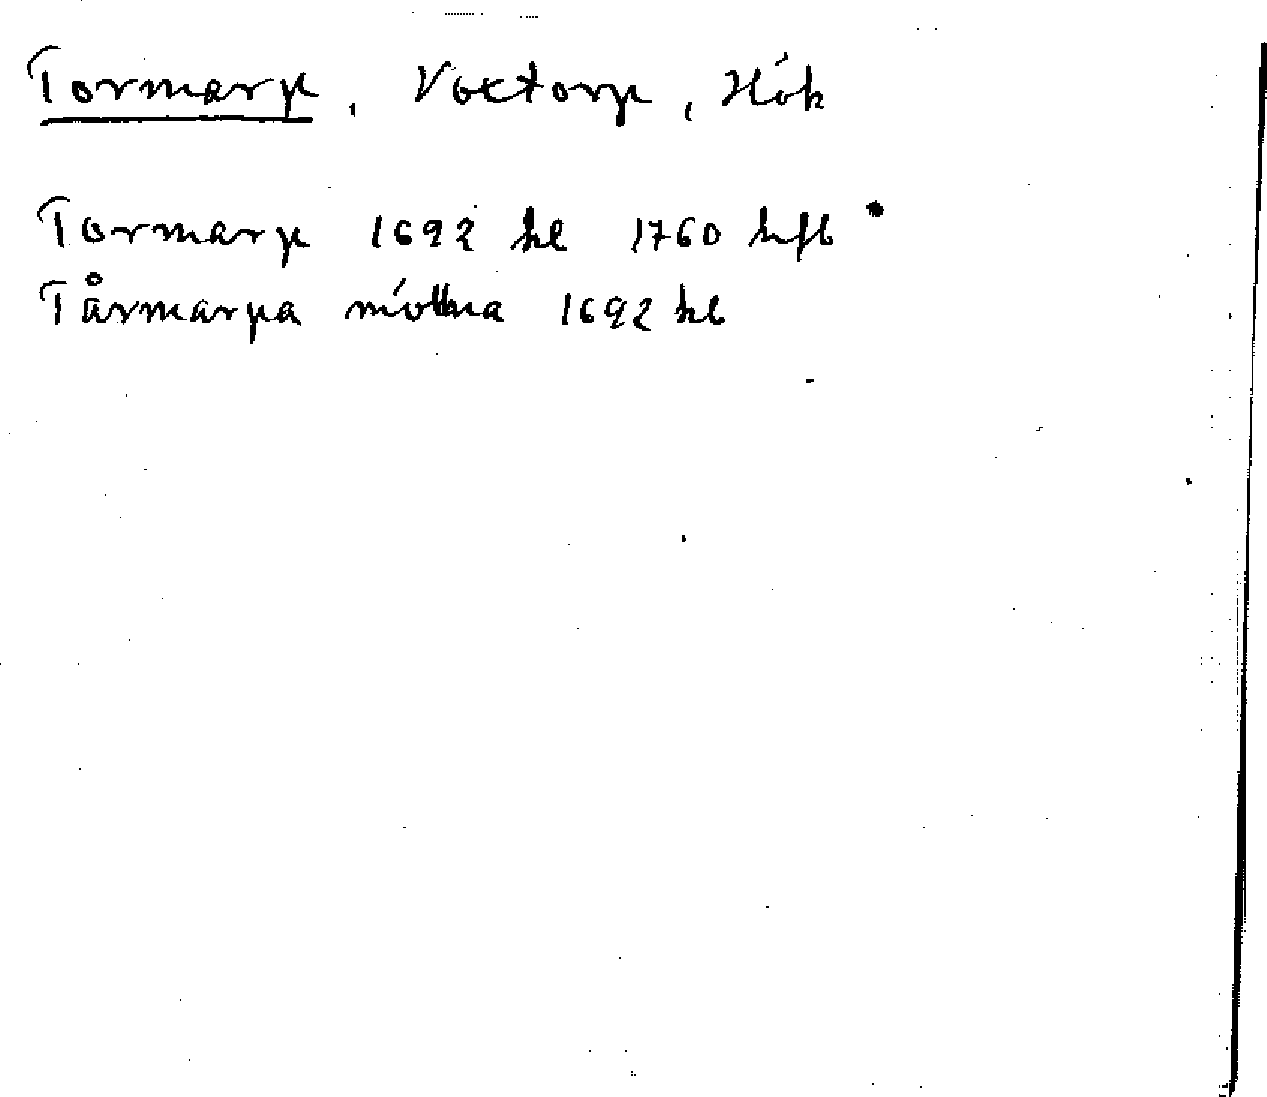 Tormarp, Voxtorp, Hök
Tormarp 1692 kl 1760 hfl
Tårmarpa mölna 1692 kl